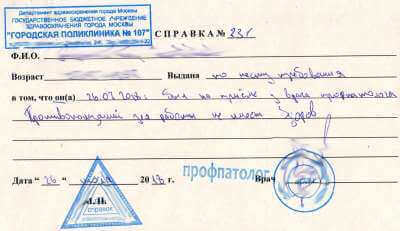 Департамент здравоохранения города Москвы
ГОСУДАРСТВЕННОЕ БЮДЖЕТНОЕ УЧРЕЖДЕНИЕ
ЗДРАВООХРАНЕНИЯ ГОРОДА МОСКВЫ
"ГОРОДСКАЯ ПОЛИКЛИНИКА № 107"
СПРАВКА № 231
Ф.И.О.
Возраст Выдана по месту требования
в том, что он(а) 26.07.2018г. был на приёме у врача профпатолога
Противопоказаний для работы не имеет Здоров
профпатолог
Дата "26" 2018 г. Врач
М.П.